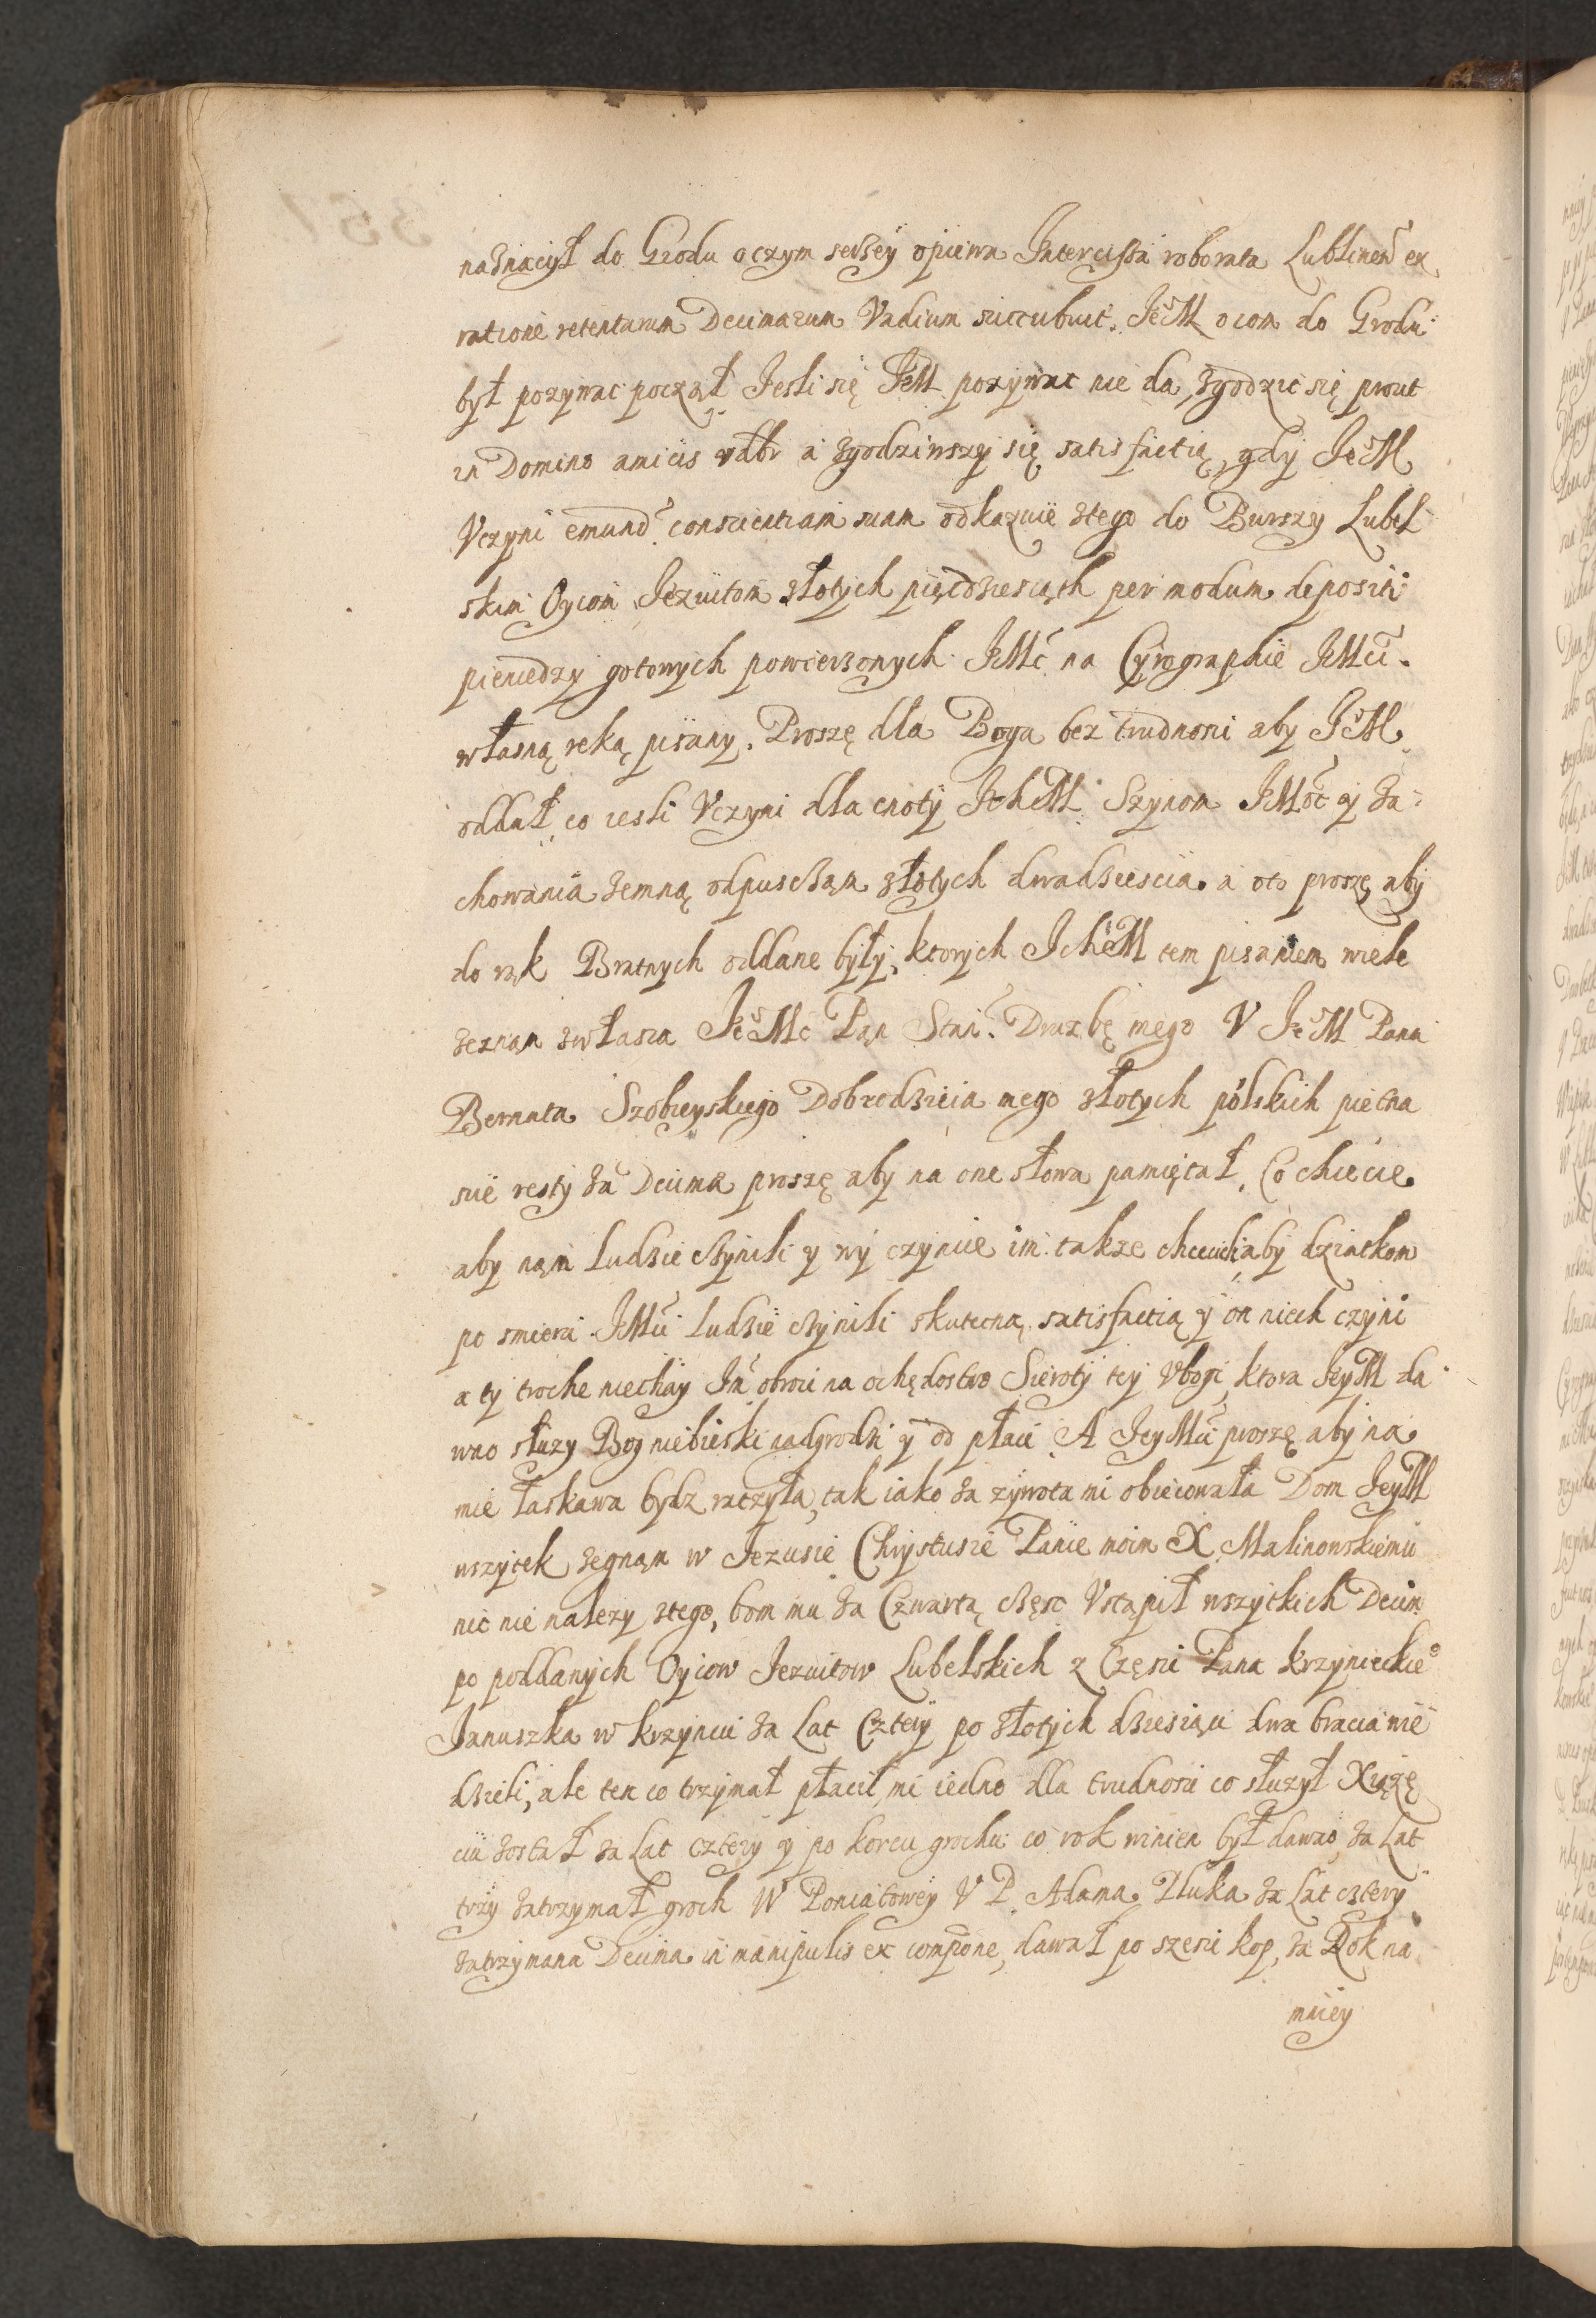 naznaczył do Grodu oczym serzey opiewa Intercissa roborata Lublinen ex
ratione retentarum Decimarum Vadium succubuit. JeM ocom do Grodu
był pozywac począł Jesli się JeM pozywac nie da, zgodzic się prout
in Domino amicis a zgodziwszy się satisfactią gdy JeM
Vczyni emund conscientiam suam odkazuie ztego do Burszy Lubel
skim Oycom Jezuitom złotych pięcdziesiąth per modum depositi
pieniedzy gotowych powierzonych JMc na Cyrographie JMci.
własną reką pisany. Proszę dla Boga bez trudnosci aby JeM
oddał, co iesli Vczyni dla cnoty IchM Szynom JMoc y za
chowania zemną odpusczam złotych dwadziescia. a oto proszę aby
do rąk Bratnych oddane były, ktorych IchM tem pisaniem wiele
zeznam zwłasza JeMc Pan Stni. Druzbę mego V JeM Pana
Bernata Szobieyskiego Dobrodzieia mego złotych polskich pietna
scie resty za Decimę proszę aby na one słowa pamiętał, Co chcecie
aby nam ludzie czynili y wy czyncie im. takze chceucli aby dziatkom
po smierci JMci ludzie czynili skuteczną satisfactią y on niech czyni
a ty troche niechay Im obroci na ochędostwo Sieroty tey Vbogi, ktora JeyM da
wno słuzy Bog niebieski nadgrodzi y od płaci. A JeyMci proszę aby na
mie łaskawa bydz raczyła, tak iako za zywota mi obiecowała Dom JeyM
wszytek zegnam w Jezusie Chrystusie Panie moim X Malinowskiemu
nic nie nalezy ztego, bom mu za Czwartą częsc Vstąpił wszytkich Decim
po poddanych Oyicow Jezuitow Lubelskich z Częsci Pana krzynieckie
Januszka w krzyncu za Lat Cztery po złotych dziesiąci dwa bracia nie
dzieli, ale ten co trzymał płacił mi iedno dla trudnosci co słuzył Xiązę
ciu został za Lat cztery y po korcu grochu co rok winien był dawao, za Lat
trzy zatrzymał groch W Poniatowey V P. Adama Pluka za Lat cztery
zatrzymana Decima in manipulis ex compone, dawał po szesci kop, za Rok na
mniey